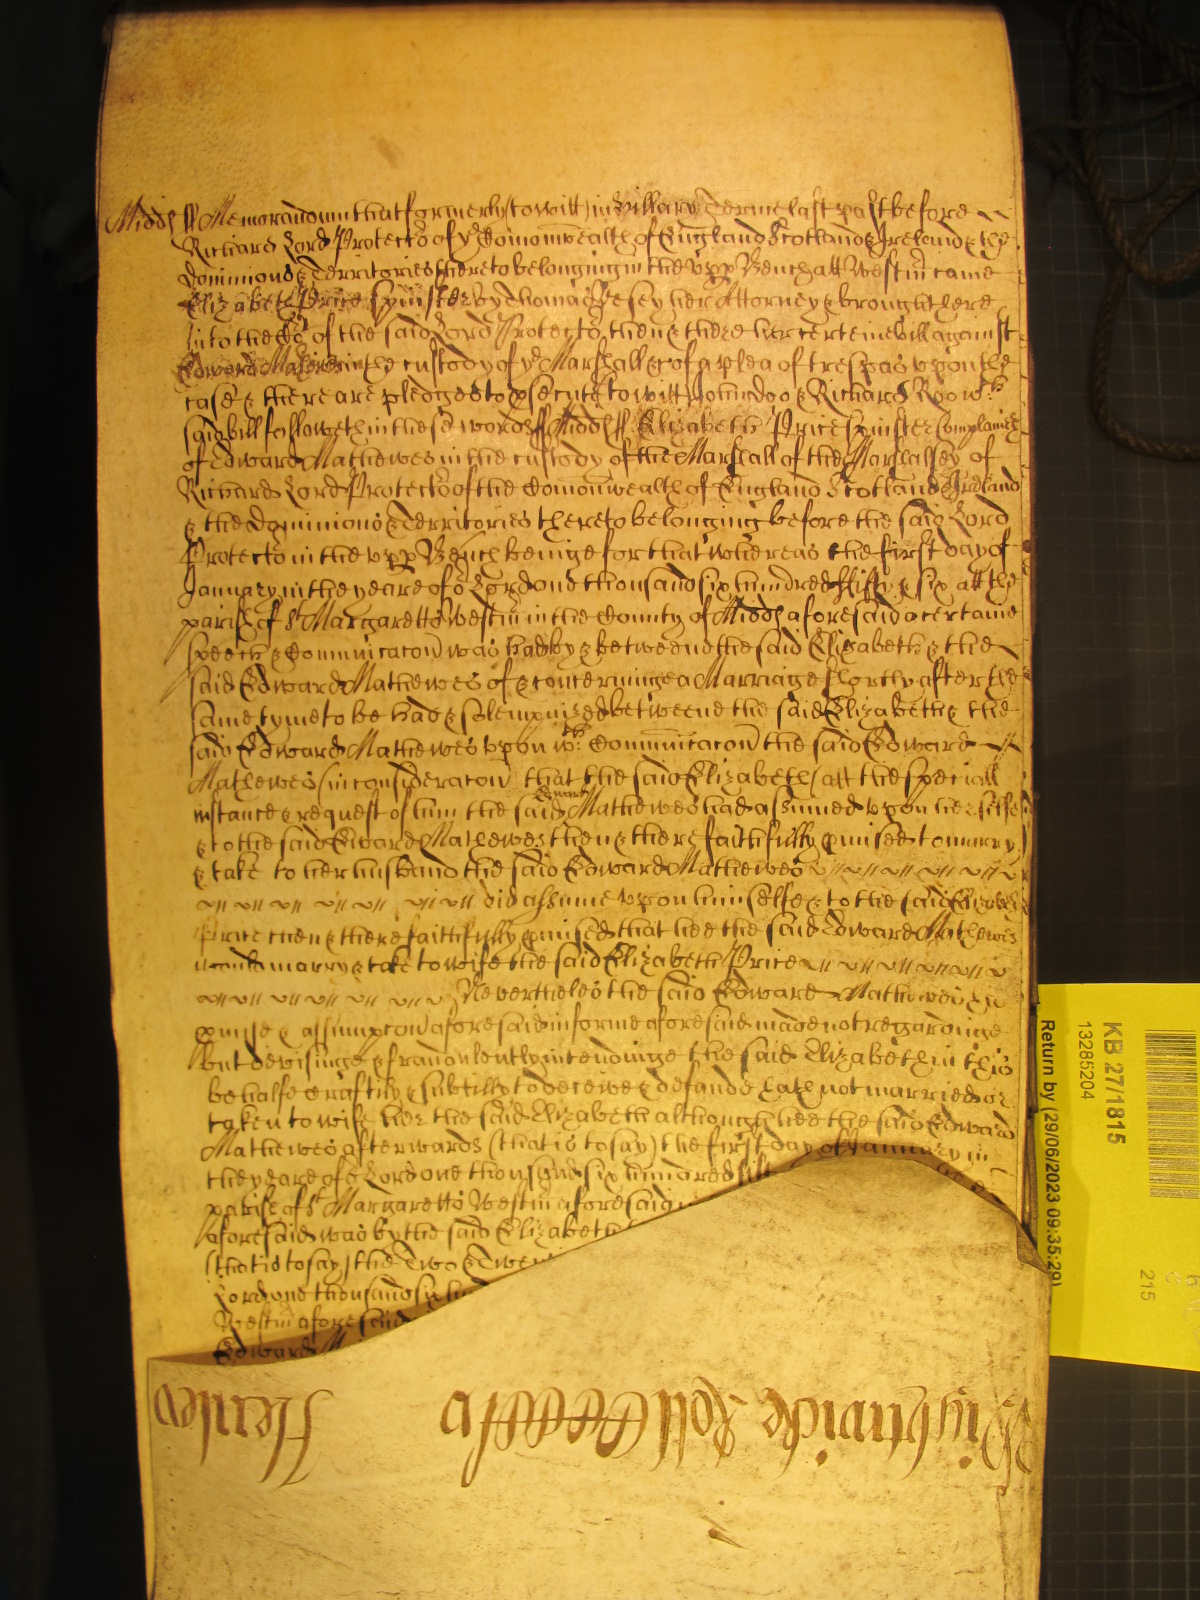 Midds ss Memorandum that formerly (to witt) in Hillary Terme last past before
Richard Lord Protector of ye Comonwealth of England Scotland & Ireland & the
dominions & Territories thereto belonging in the Upp Bench att Westmr came
Elizabeth Price Spinster by Thomas Vesey her Attorney & brought here
into the Cort of the said Lord Protector then & there her certeine bill against
Edward Mathewes in the custody of ye Marshall &c of a plea of trespas upon the
case & there are pledges to psecute to witt John doo & Richard Roo wch
said bill followeth in these words ss Midds ss Elizabeth Price Spinster complaineth
of Edward Mathewes in the custody of the Marshall of the Marshalsey of
Richard Lord Protector of the Comonwealth of England Scotland & Ireland
& the dominions & Territories thereto belonging before the said Lord
Protector in the upp Bench beinge for that whereas the first day of
January in the yeare of or Lord one thousand six hundred fifty & six att the
parish of St Margaretts Westmr in the County of Midds aforesaid a certaine
speech & Communicacon was had by & betweene the said Elizabeth & the
said Edward Mathewes of & concerninge a Marriage shortly after the
same tyme to be had & solempnized betweene the said Elizabeth & the
said Edward Mathewes upon wch Communicacon the said Edward
Mathewes (in consideracon that the said Elizabeth (att the speciall
instance & request of him the said Edward Mathewes had assumed upon her selfe
& to the said Edward Mathewes then & there faithfully pmised to marry
& take to her husband the said Edward Mathewes
did assume upon himselfe & to the said Elizabeth
Price then & there faithfully pmised that hee the said Edward Mathewes
would marry & take to wife the said Elizabeth Price
Neverthelesse the said Edward Mathewes his
pmise & assumpcon aforesaid in forme aforesaid made not regardinge
but devisinge & fraudulently intendinge the said Elizabeth in this
behalfe craftily & subtilly to deceive & defraude hath not married or
taken to wife her the said Elizabeth although hee the said Edward
Mathewes afterwards (that is to say) the first day of January in
the yeare of or Lord one thousand six hundred
parish of St Margaretts Westmr aforesaid
aforesaid was by the said Elizabeth
(that is to say) the Two & Twen
Lord one thousand six hun
Westmr aforesaid
Edward M
Wightwicke Roll
Henley
KB 27/1815
13285204
Return by (29/06/2023 09:35:29)
215